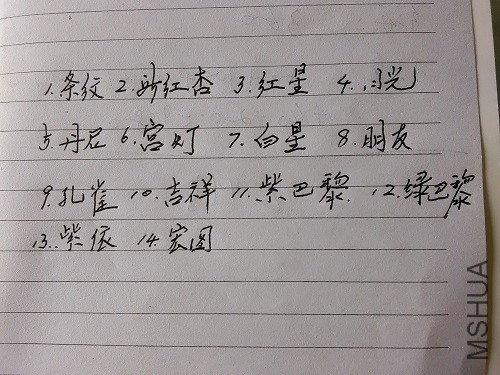 1.条纹 2.新红杏 3.红星 4.月光
5.丹尼 6.宫灯 7.白星 8.朋友
9.孔雀 10.吉祥 11.紫巴黎 12.绿巴黎
13.紫依 14.宏图
MSHUA